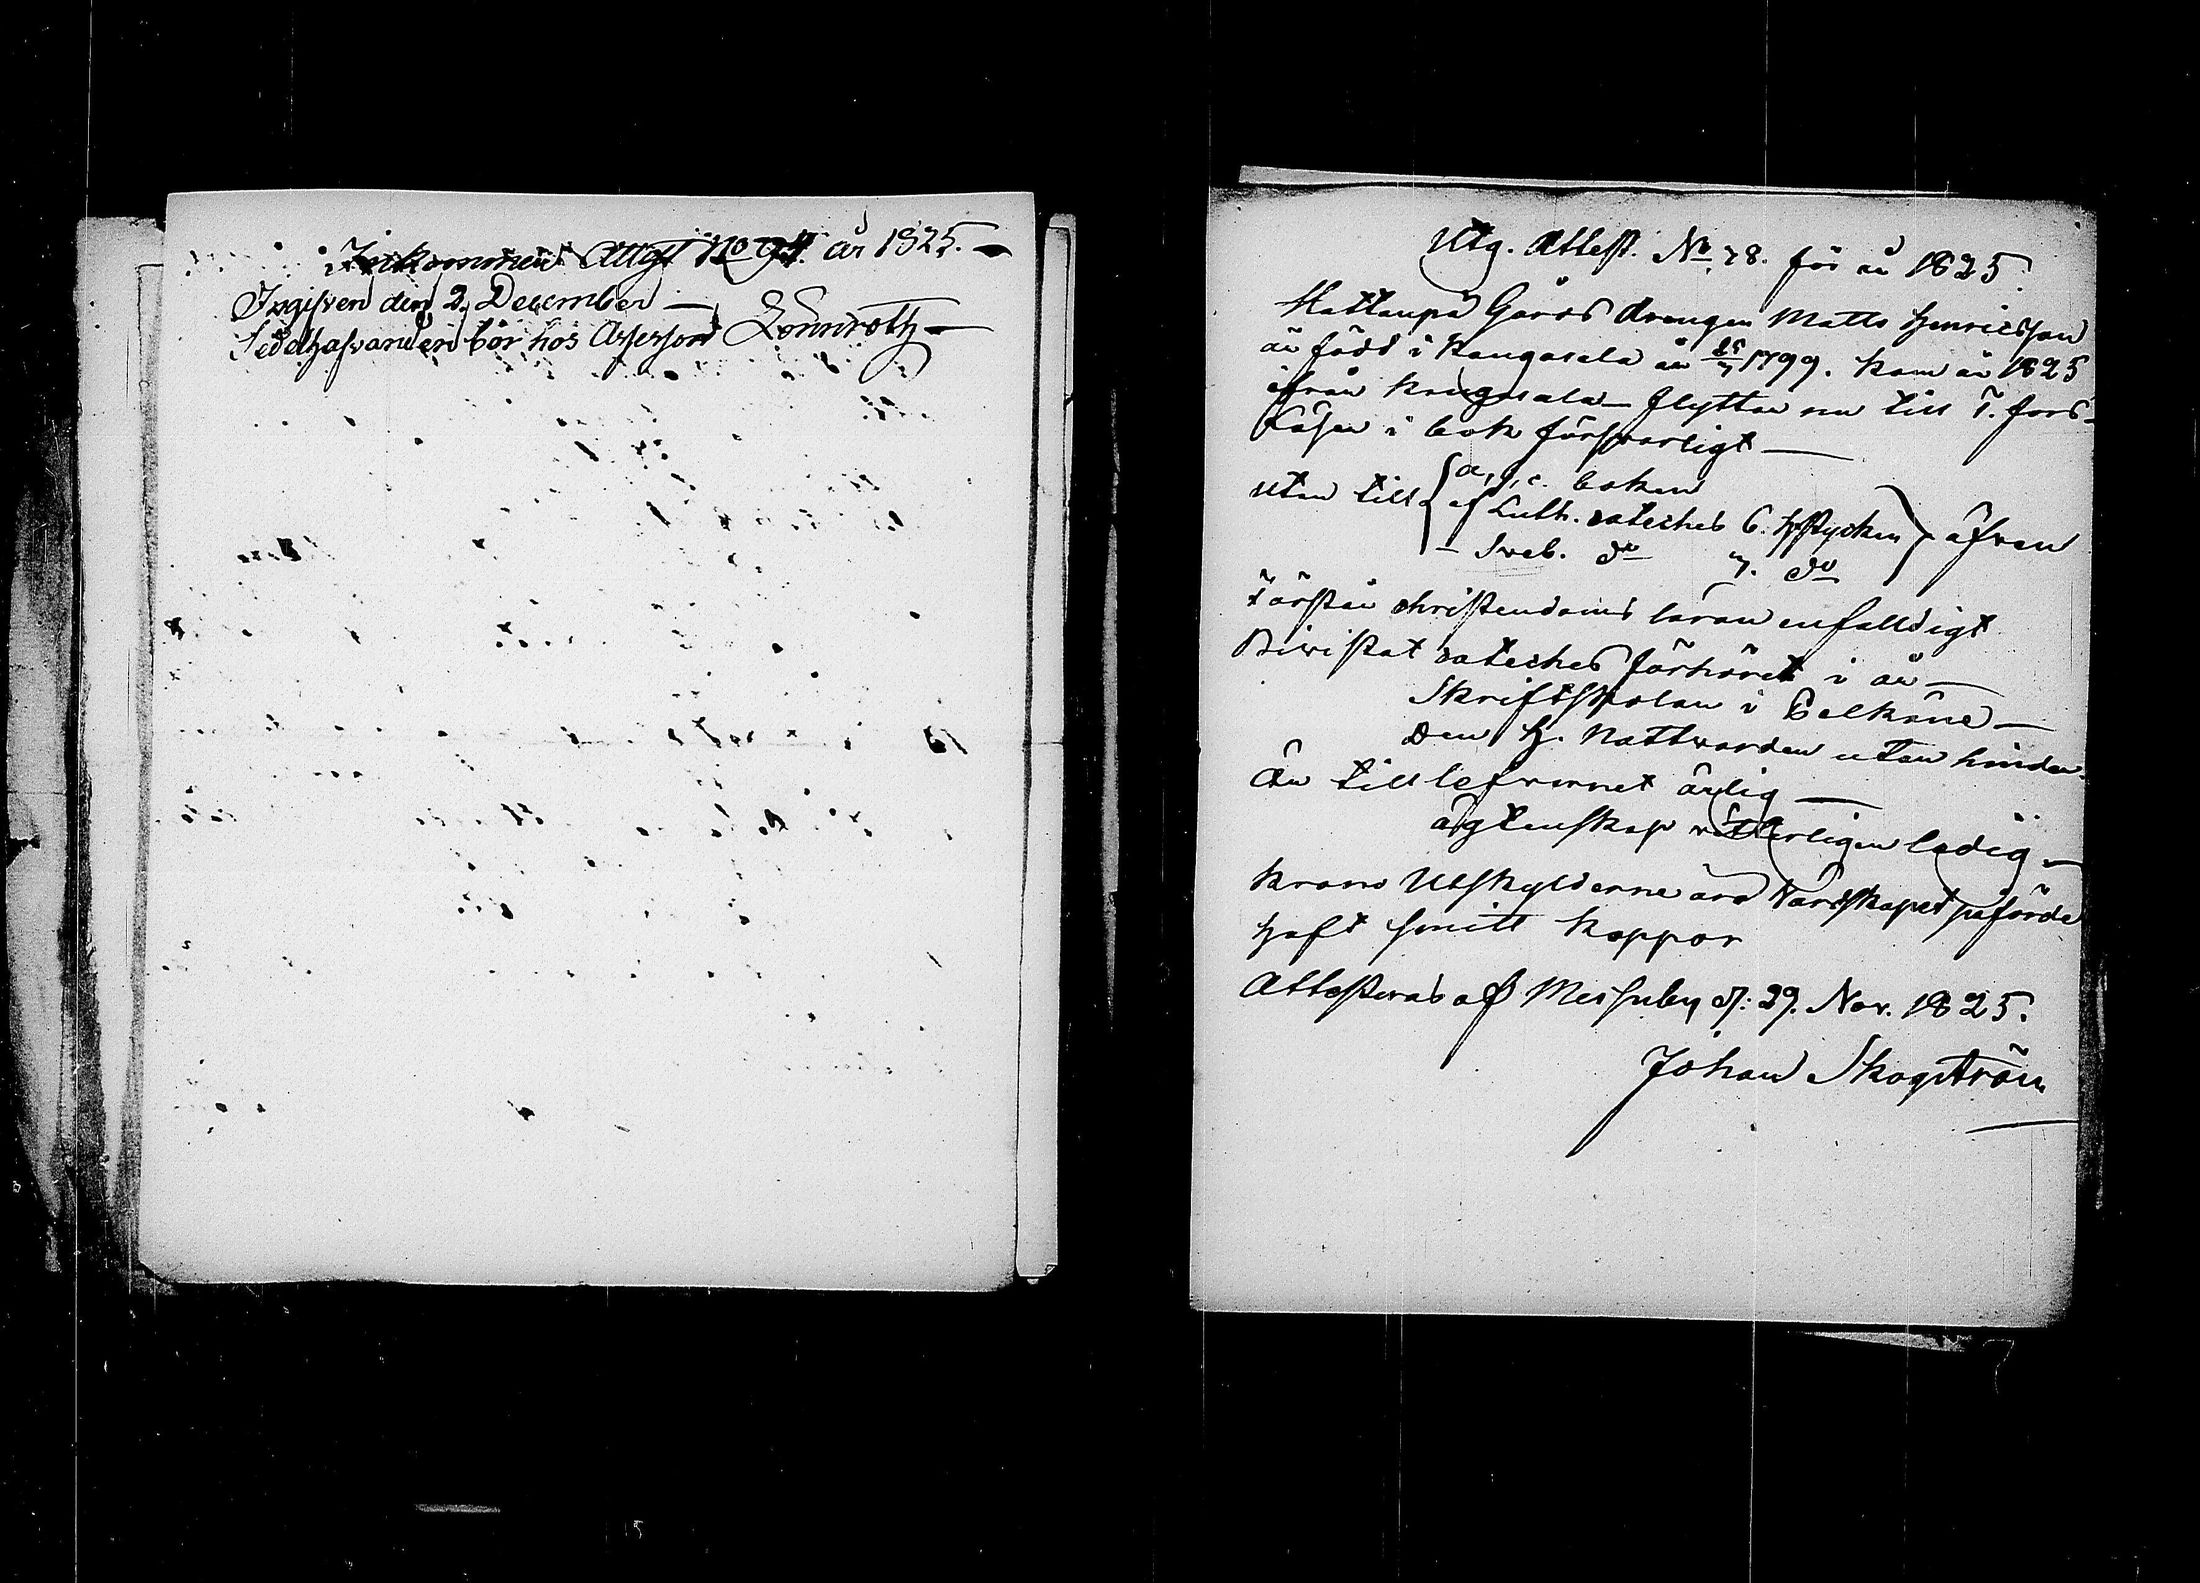 Inkommen Attest No 94. år 1825.
Ingifven den 2 December
Sedelhafvanden bör hos Assessor Lönnroth
Utg. Attest. No 78. för år 1825
Hattanpä Gårds drengen Matts Henricsson
är född i Kangasala år 25/7 1799. kom år 1825
ifrån Kangasala flyttar nu till T. fors
Läser i bok försvarligt
uten till a, b, c. boken
af Luth. cateches 6. Hstycken äfven
Sveb. do 7. do
Förstår christendoms läran enfalldigt
Bivistat cateches förhöret i år
Skriftskolan i Pelkäne
Den H. Nattvarden utan hinder
Är till lefvernet ärlig
ägtenskap vitterligen ledig
Krono Utskylderne äro Värdskapet påförde
Haft smitt koppor
Attesteras af Messuby d: 29. Nov. 1825.
Johan Skogström